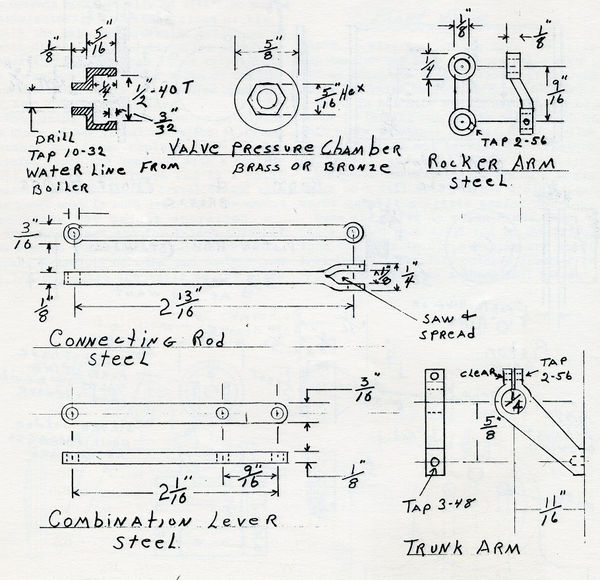 1/8"
5/16"
1/4
1/2"-40 T
3/32"
Drill
Tap 10-32
Water Line From
Boiler
5/8"
5/16" Hex
Valve Pressure Chamber
Brass or Bronze
1/8"
1/8"
1/4"
9/16"
Tap 2-56
Rocker Arm
Steel.
3/16"
1/8"
2 13/16"
1/8"
1/4"
Saw &
Spread
Connecting Rod
Steel
3/16"
9/16"
2 1/16"
1/8"
Combination Lever
Steel.
Clear
Tap
2-56
1/4
5/8"
Tap 3-48
11/16"
Trunk Arm